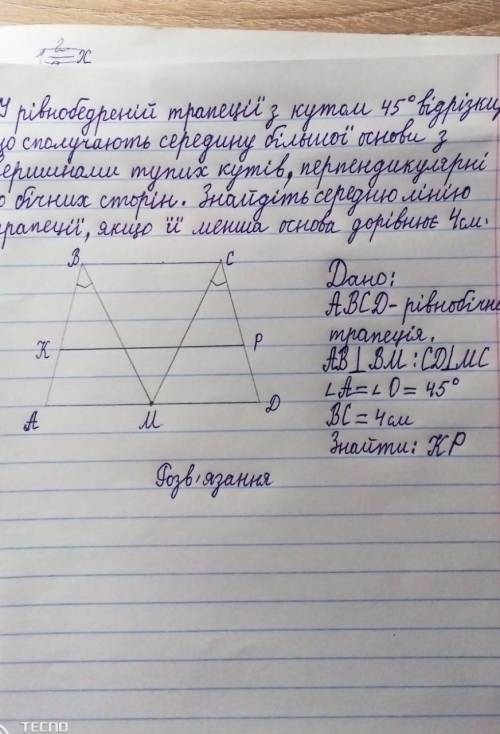 У рівнобедреній трапеції з кутом 45° відрізки,
що сполучають середину більшої основи з
вершинами тупих кутів, перпендикулярні
до бічних сторін. Знайдіть середню лінію
трапеції, якщо її менша основа дорівнює 4 см.
B C
K P
A M D
Дано:
ABCD - рівнобічна
трапеція.
AB⊥BM; CD⊥MC
∠A=∠D=45°
BC=4см
Знайти: KP
Розв'язання
TECNO